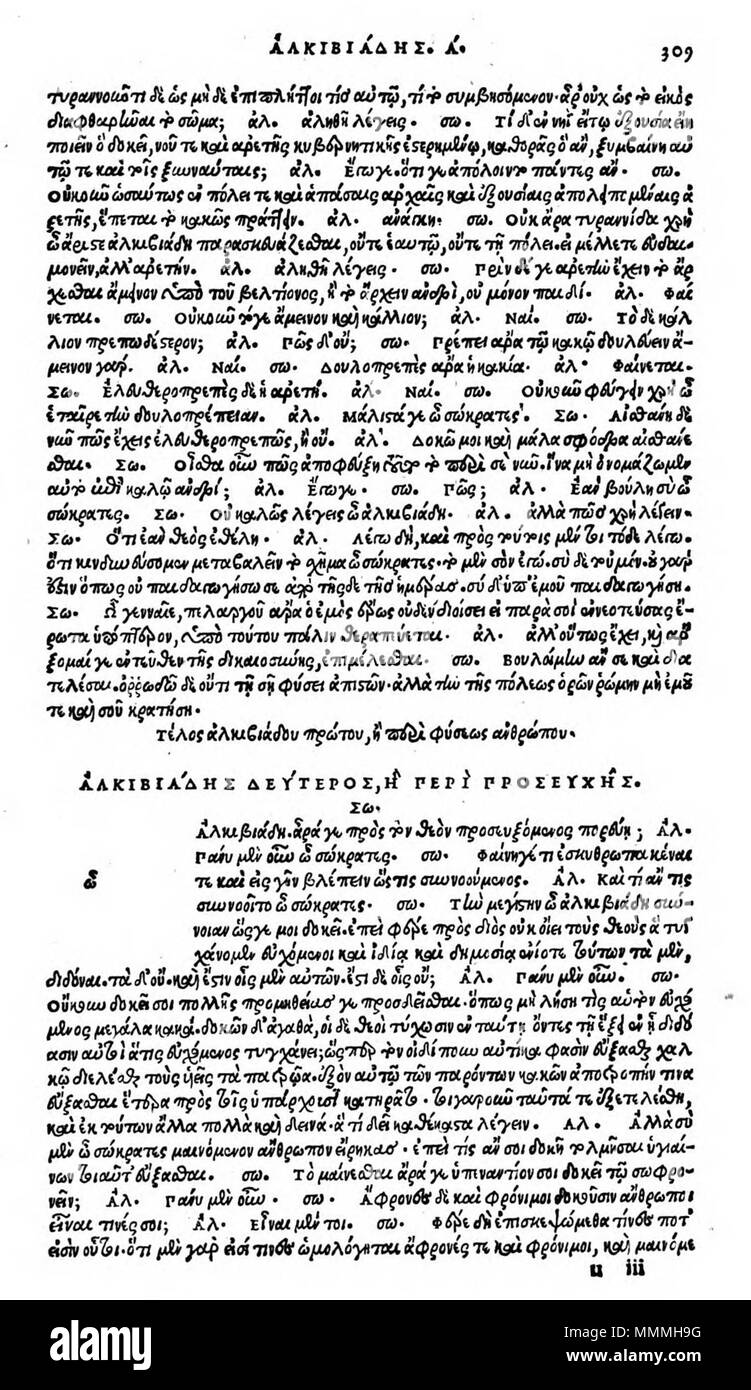 ἈΛΚΙΒΙΆΔΗΣ. Α.
309
τυραννοῦντι δὲ ὡς μὴ δὲ ἐπιπλήττοι τὶς αὐτῷ, τί τὸ συμβησόμενον. ἆρ' οὐχ ὡς τὸ εἰκὸς
διαφθαρῆναι τὸ σῶμα; ἀλ. ἀληθῆ λέγεις. σω. Τί δ' ἐν νηῒ εἴτῳ ἐξουσία εἴη
ποιεῖν ὃ δοκεῖ, νοῦ τε καὶ ἀρετῆς κυβερνητικῆς ἐστερημένῳ, καθορᾷς ὃ ἂν, ξυμβαίη αὐ
τῷ τε καὶ τοῖς ξυνναύταις; ἀλ. Ἔγωγε. ὅτι γε ἀπόλοιντο πάντες ἄν. σω.
Οὐκοῦν ὡσαύτως ἐν πόλει τε καὶ ἁπάσαις ἀρχαῖς καὶ ἐξουσίαις ἀπολειπομέναις ἀ
ρετῆς, ἕπεται τὸ κακῶς πράττειν. ἀλ. ἀνάγκη. σω. Οὐκ ἄρα τυραννίδα χρὴ
ὦ ἄριστε ἀλκιβιάδη παρασκευάζεσθαι, οὔτε ἑαυτῷ, οὔτε τῇ πόλει. εἰ μέλλετε εὐδαι-
μονεῖν, ἀλλ' ἀρετήν. ἀλ. ἀληθῆ λέγεις. σω. Πρὶν δέ γε ἀρετὴν ἔχειν τὸ ἄρ
χεσθαι ἄμεινον ὑπὸ τοῦ βελτίονος, ἢ τὸ ἄρχειν ἀνδρὶ, οὐ μόνον παιδί. ἀλ. Φαί
νεται. σω. Οὐκοῦν τό γε ἄμεινον καὶ κάλλιον; ἀλ. Ναί. σω. Τὸ δὲ κάλ
λιον πρεπωδέστερον; ἀλ. Πῶς δ' οὔ; σω. Πρέπει ἄρα τῷ κακῷ δουλεύειν ἄ-
μεινον γάρ. ἀλ. Ναί. σω. Δουλοπρεπὲς ἄρα ἡ κακία. ἀλ. Φαίνεται.
Σω. Ἐλευθεροπρεπὲς δὲ ἡ ἀρετή. ἀλ. Ναί. σω. Οὐκοῦν φεύγειν χρὴ ὦ
ἑταῖρε τὴν δουλοπρέπειαν. ἀλ. Μάλιστά γε ὦ σώκρατες. Σω. Αἰσθάνῃ δὲ
νῦν πῶς ἔχεις ἐλευθεροπρεπῶς, ἢ οὔ. ἀλ. Δοκῶ μοι καὶ μάλα σφόδρα αἰσθάνε
σθαι. Σω. Οἶσθα οὖν πῶς ἀποφεύξῃ τοῦτο τὸ περὶ σὲ νῦν. ἵνα μὴ ὀνομάζωμεν
αὐτὸ ἐπὶ καλῷ ἀνδρί; ἀλ. Ἔγωγε. σω. Πῶς; ἀλ. Ἐὰν βούλῃ σὺ ὦ
σώκρατες. Σω. Οὐ καλῶς λέγεις ὦ ἀλκιβιάδη. ἀλ. ἀλλὰ πῶς χρὴ λέγειν.
Σω. Ὅτι ἐὰν θεὸς ἐθέλῃ. ἀλ. Λέγω δή, καὶ πρὸς τούτοις μέν τοι τόδε λέγω.
ὅτι κινδυνεύσομεν μεταβαλεῖν τὸ σχῆμα ὦ σώκρατες. τὸ μὲν σὸν ἐγώ. σὺ δὲ τοὐμόν. οὐ γὰρ
ἔστιν ὅπως οὐ παιδαγωγήσω σε ἀπὸ τῆσδε τῆς ἡμέρας. σὺ δ' ὑπ' ἐμοῦ παιδαγωγήσῃ.
Σω. Ὦ γενναῖε, πελαργοῦ ἄρα ὁ ἐμὸς ἔρως οὐδὲν διοίσει εἰ παρὰ σοὶ ἐννεοττεύσας ἔ-
ρωτα ὑπόπτερον, ὑπὸ τούτου πάλιν θεραπεύεται. ἀλ. ἀλλ' οὕτως ἔχει, καὶ ἄρ
ξομαί γε ἐντεῦθεν τῆς δικαιοσύνης, ἐπιμέλεσθαι. σω. Βουλοίμην ἄν σε καὶ δια
τελέσαι. ὀρρωδῶ δὲ οὔτι τῇ σῇ φύσει ἀπιστῶν. ἀλλὰ τὴν τῆς πόλεως ὁρῶν ῥώμην μὴ ἐμοῦ
τε καὶ σοῦ κρατήσῃ.
Τέλος ἀλκιβιάδου πρώτου, ἢ περὶ φύσεως ἀνθρώπου.
ἈΛΚΙΒΙΆΔΗΣ ΔΕΎΤΕΡΟΣ, Ἢ ΠΕΡῚ ΠΡΟΣΕΥΧΗ͂Σ.
Σω.
ὦ
Ἀλκιβιάδη. ἆρά γε πρὸς τὸν θεὸν προσευξόμενος πορεύῃ; Ἀλ.
Πάνυ μὲν οὖν ὦ σώκρατες. σω. Φαίνῃ γέ τι ἐσκυθρωπακέναι
τε καὶ εἰς γῆν βλέπειν ὥς τις συννοούμενος. Ἀλ. Καὶ τί ἄν τις
συννοοῖτο ὦ σώκρατες. σω. Τὴν μεγίστην ὦ ἀλκιβιάδη σύν-
νοιαν ὥς γε μοι δοκεῖ. ἐπεὶ φέρε πρὸς διὸς οὐκ οἴει τοὺς θεοὺς ἃ τυγ
χάνομεν εὐχόμενοι καὶ ἰδίᾳ καὶ δημοσίᾳ ἐνίοτε τούτων τὰ μὲν,
διδόναι. τὰ δ' οὔ. καὶ ἔστιν οἷς μὲν αὐτῶν. ἔστι δὲ οἷς οὔ; Ἀλ. Πάνυ μὲν οὖν. σω.
Οὔκουν δοκεῖ σοι πολλῆς προμηθείας γε προσδεῖσθαι. ὅπως μὴ λήσῃ τὶς αὑτὸν εὐχό
μενος μεγάλα κακά. δοκῶν δ' ἀγαθά, οἱ δὲ θεοὶ τύχωσιν ἐν ταύτῃ ὄντες τῇ ἕξει ἐν ᾗ διδό
ασιν αὐτοὶ ἅ τις εὐχόμενος τυγχάνει; ὥσπερ τὸν οἰδίπουν αὐτίκα φασὶν εὔξασθαι χαλ
κῷ διελέσθαι τοὺς υἱεῖς τὰ πατρῷα. ἐξὸν αὐτῷ τῶν παρόντων κακῶν ἀποτροπήν τινα
εὔξασθαι ἕτερα πρὸς τοῖς ὑπάρχουσι κατηρᾶτο. τοιγαροῦν ταῦτά τε ἐξετελέσθη,
καὶ ἐκ τούτων ἄλλα πολλὰ καὶ δεινά. ἃ τί δεῖ καθ' ἕκαστα λέγειν. Ἀλ. Ἀλλὰ σὺ
μὲν ὦ σώκρατες μαινόμενον ἄνθρωπον εἴρηκας. ἐπεὶ τίς ἄν σοι δοκῇ τολμῆσαι ὑγιαί-
νων τοιαῦτ' εὔξασθαι. σω. Τὸ μαίνεσθαι ἆρά γε ὑπεναντίον σοι δοκεῖ τῷ σωφρο-
νεῖν; Ἀλ. Πάνυ μὲν οὖν. σω. Ἄφρονες δὲ καὶ φρόνιμοι δοκοῦσιν ἄνθρωποι
εἶναί τινές σοι; Ἀλ. Εἶναι μέν τοι. σω. Φέρε δὴ ἐπισκεψώμεθα τίνες ποτ'
εἰσὶν οὗτοι. ὅτι μὲν γὰρ εἰσί τινες ὡμολόγηται ἄφρονές τε καὶ φρόνιμοι, καὶ μαινόμε
u iii
alamy
Image ID: MMMH9G
www.alamy.com